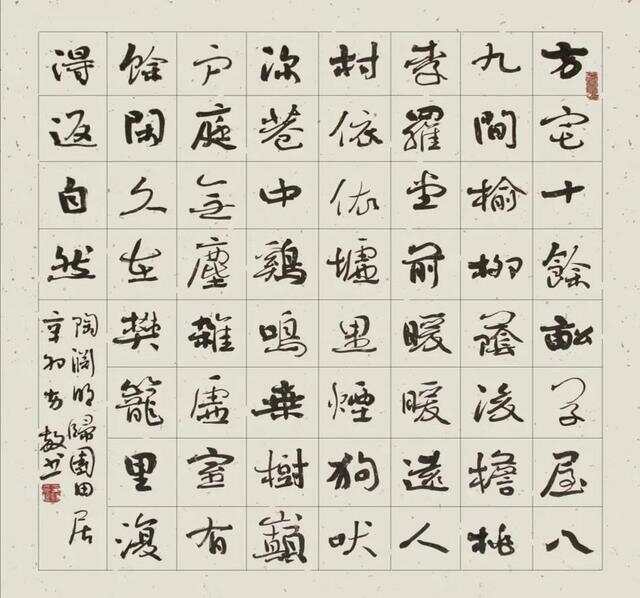 方宅十餘畝草屋八
九間榆柳蔭後檐桃
李羅堂前暖暖遠人
村依依墟里煙狗吠
深巷中鷄鳴桑樹巔
户庭無塵雜虛室有
餘閑久在樊籠里復
得返自然
陶淵明歸園田居
書